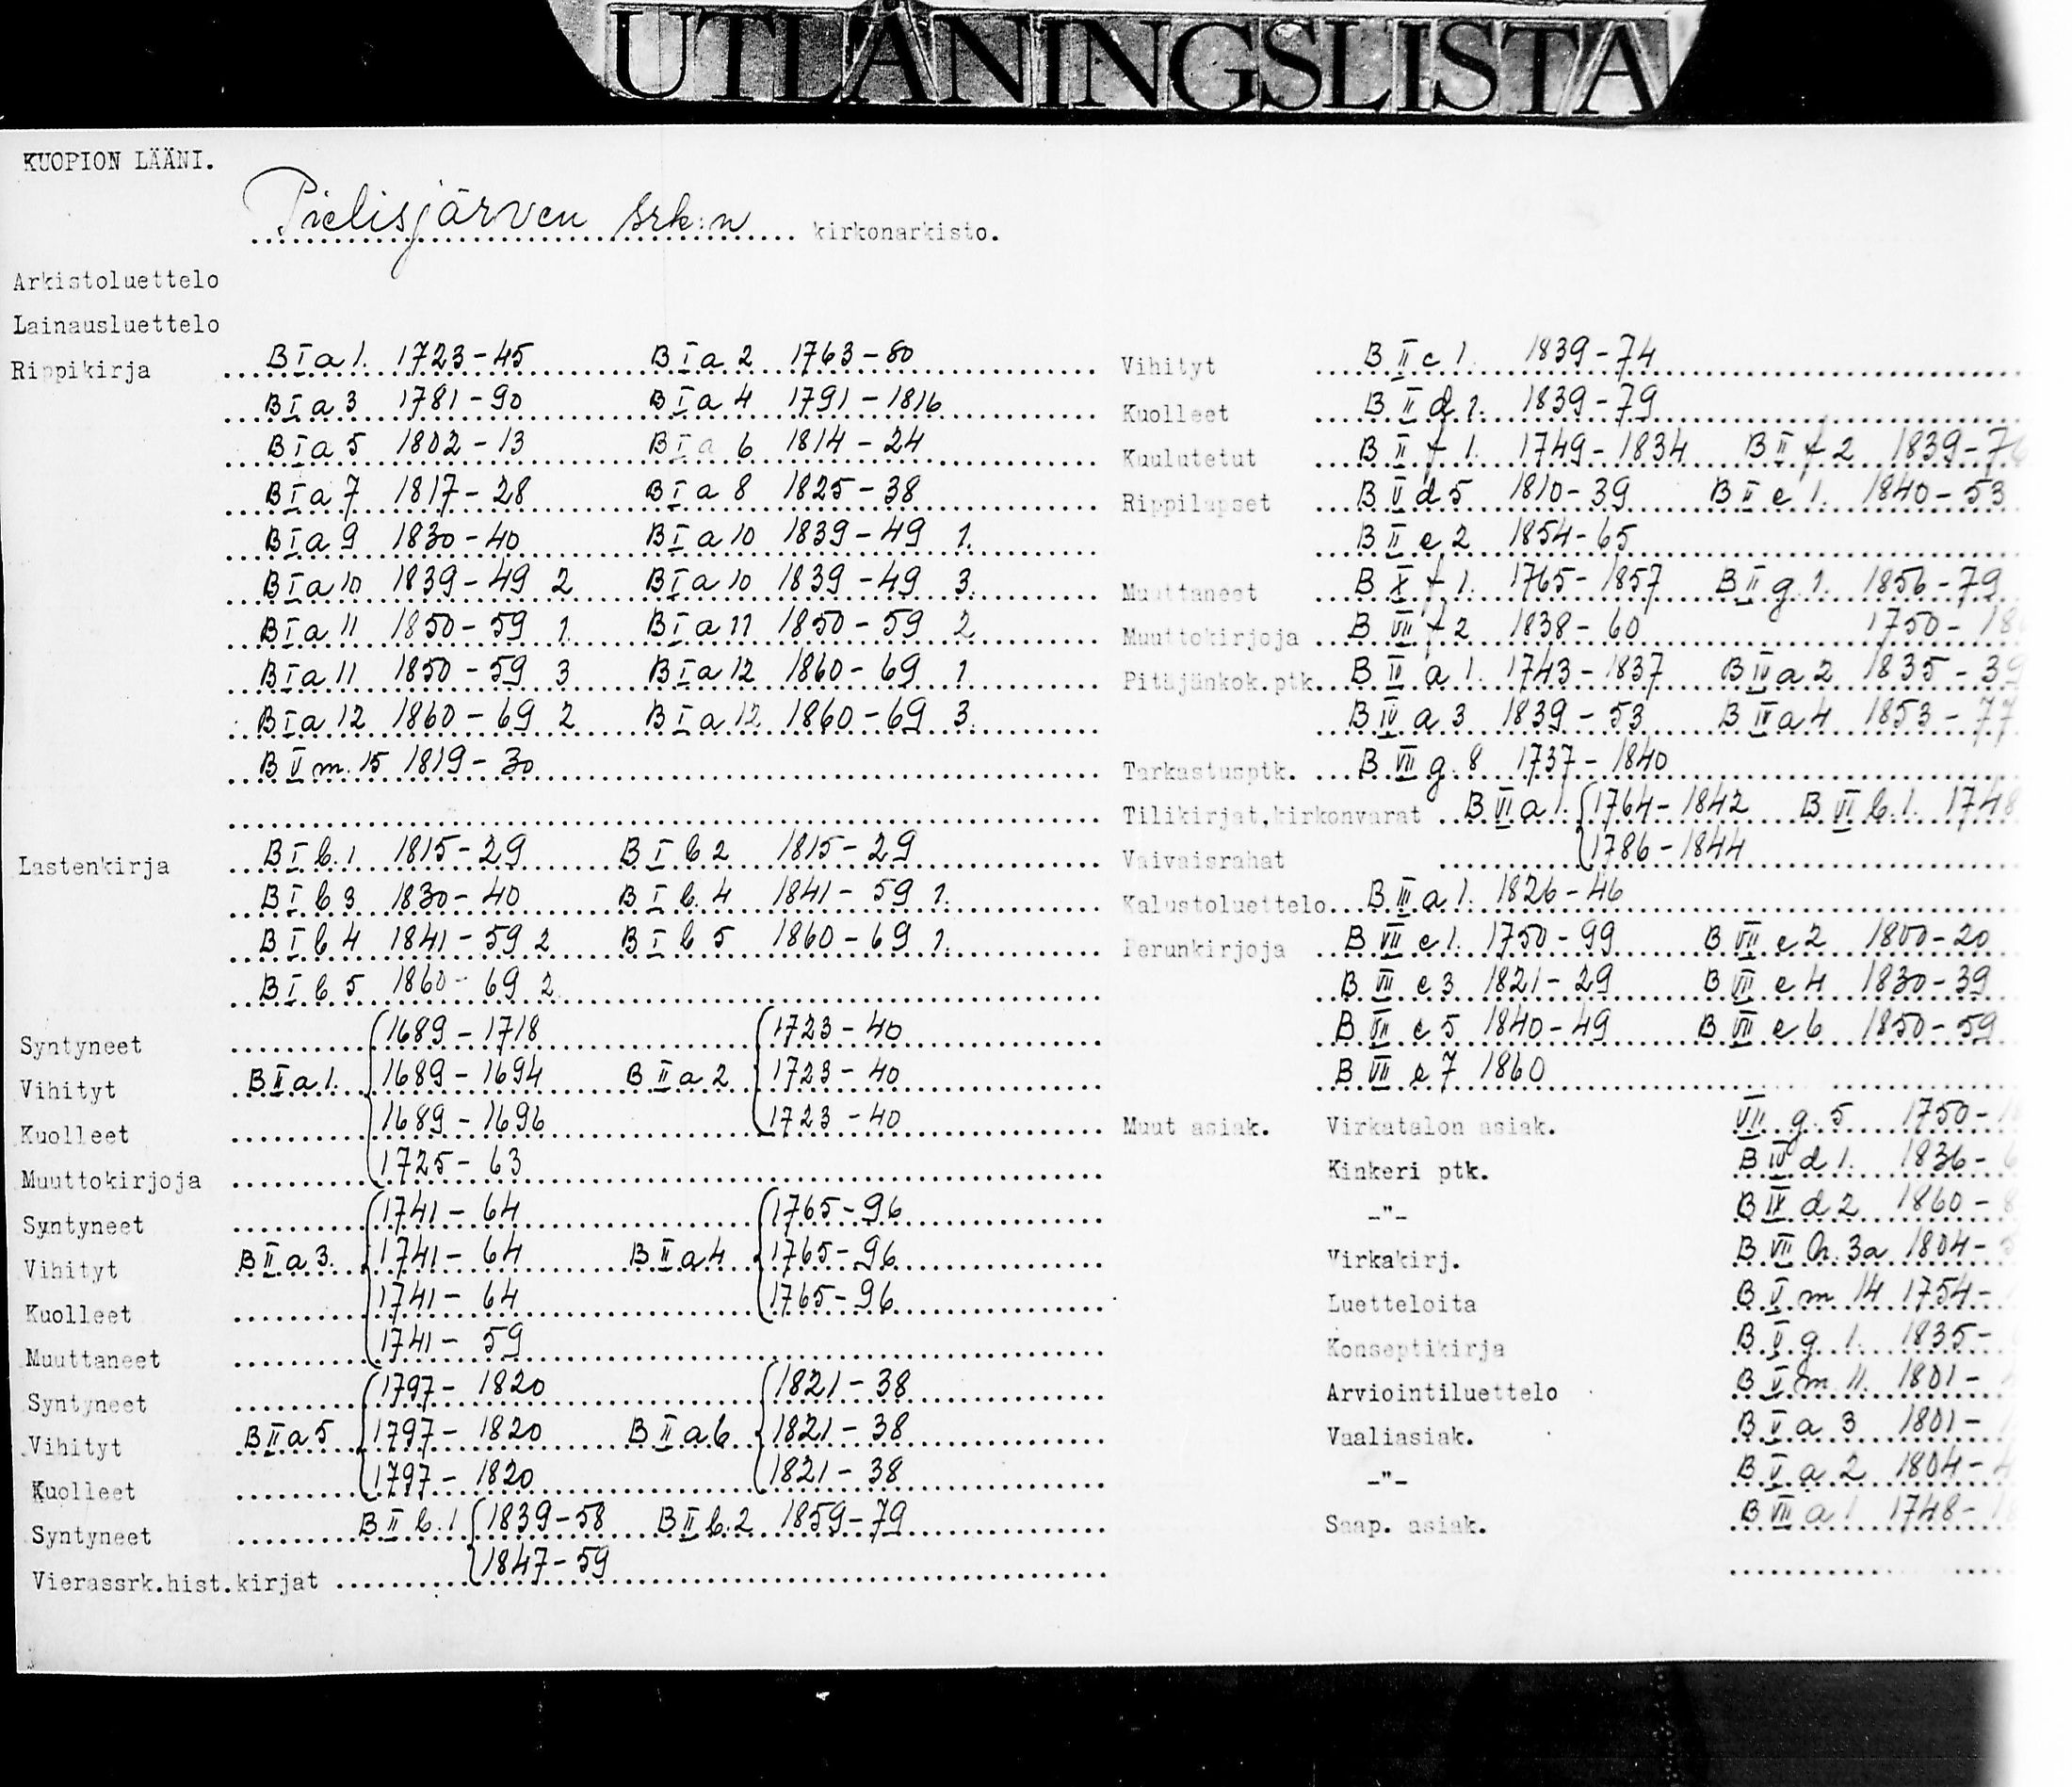 UTLÅNINGSLISTA
KUOPION LÄÄNI.
Pielisjärven srk:n kirkonarkisto.
Arkistoluettelo
Lainausluettelo
Rippikirja B I a 1. 1723-45 B I a 2 1763-80
B I a 3 1781-90 B I a 4 1791-1816
B I a 5 1802-13 B I a 6 1814-24
B I a 7 1817-28 B I a 8 1825-38
B I a 9 1830-40 B I a 10 1839-49 1.
B I a 10 1839-49 2 B I a 10 1839-49 3.
B I a 11 1850-59 1. B I a 11 1850-59 2
B I a 11 1850-59 3 B I a 12 1860-69 1
B I a 12 1860-69 2 B I a 12 1860-69 3.
B V m. 15 1819-30
Lastenkirja B I b. 1 1815-29 B I b 2 1815-29
B I b 3 1830-40 B I b. 4 1841-59 1.
B I b 4 1841-59 2 B I b 5 1860-69 1.
B I b 5 1860-69 2
Syntyneet 1689-1718 1723-40
Vihityt B II a 1. 1689-1694 B II a 2 1723-40
Kuolleet 1689-1696 1723-40
Muuttokirjoja 1725-63
Syntyneet 1741-64 1765-96
Vihityt B II a 3. 1741-64 B II a 4 1765-96
Kuolleet 1741-64 1765-96
Muuttaneet 1741-59
Syntyneet 1797-1820 1821-38
Vihityt B II a 5 1797-1820 B II a 6 1821-38
Kuolleet 1797-1820 1821-38
Syntyneet B II b. 1 1839-58 B II b. 2 1859-79
Vierassrk.hist.kirjat 1847-59
Vihityt B II c 1. 1839-74
Kuolleet B II d 1. 1839-79
Kuulutetut B II f 1. 1749-1834 B II f 2 1839-7
Rippilapset B V d 5 1810-39 B II e 1. 1840-53
B II e 2 1854-65
Muuttaneet B X f 1. 1765-1857 B II g. 1. 1856-79
Muuttokirjoja B VII f 2 1838-60 1750-18
Pitäjänkok.ptk. B IV a 1. 1743-1837 B IV a 2 1835-39
B IV a 3 1839-53 B IV a 4 1853-77
Tarkastusptk. B VII g. 8 1737-1840
Tilikirjat,kirkonvarat B VI a 1. 1764-1842 B VI b. 1. 1748
Vaivaisrahat 1786-1844
Kalustoluettelo B III a 1. 1826-46
Perunkirjoja B VII e 1. 1750-99 B VII e 2 1800-20
B VII e 3 1821-29 B VII e 4 1830-39
B VII e 5 1840-49 B VII e 6 1850-59
B VII e 7 1860
Muut asiak. Virkatalon asiak. VII g. 5 1750-1
Kinkeri ptk. B IV d 1. 1836-
-"- B IX d 2 1860-8
Virkakirj. B VII h. 3a 1804-
Luetteloita B V m 14 1754-
Konseptikirja B V g. 1. 1835-
Arviointiluettelo B V m 11. 1801-
Vaaliasiak. B V a 3 1801-
-"- B V a 2 1804-4
Saap. asiak. B VIII a 1 1748-1